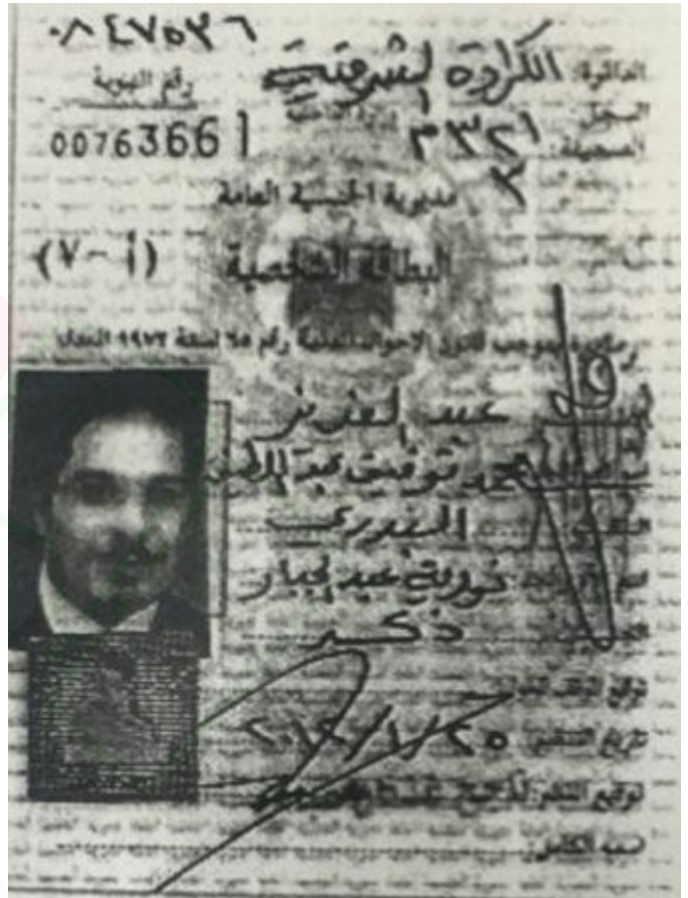 ٠٨٤٧٥٣٦
رقم الهوية
00763661
الدائرة: الكرادة الشرقية
السجل:
الصحيفة: ٣٢١ م
٣
مديرية الجنسية العامة
(أ-٧)
البطاقة الشخصية
بموجب قانون الاحوال المدنية رقم ٦٥ لسنة ١٩٧٢ المعدل
عبد العزيز
محمد توفيق عبد
البدري
نورية عبد الجبار
ذكر
تاريخ التنظيم ٢٠١٢/١/٢٥
توقيع المنظم
اسمه الكامل: